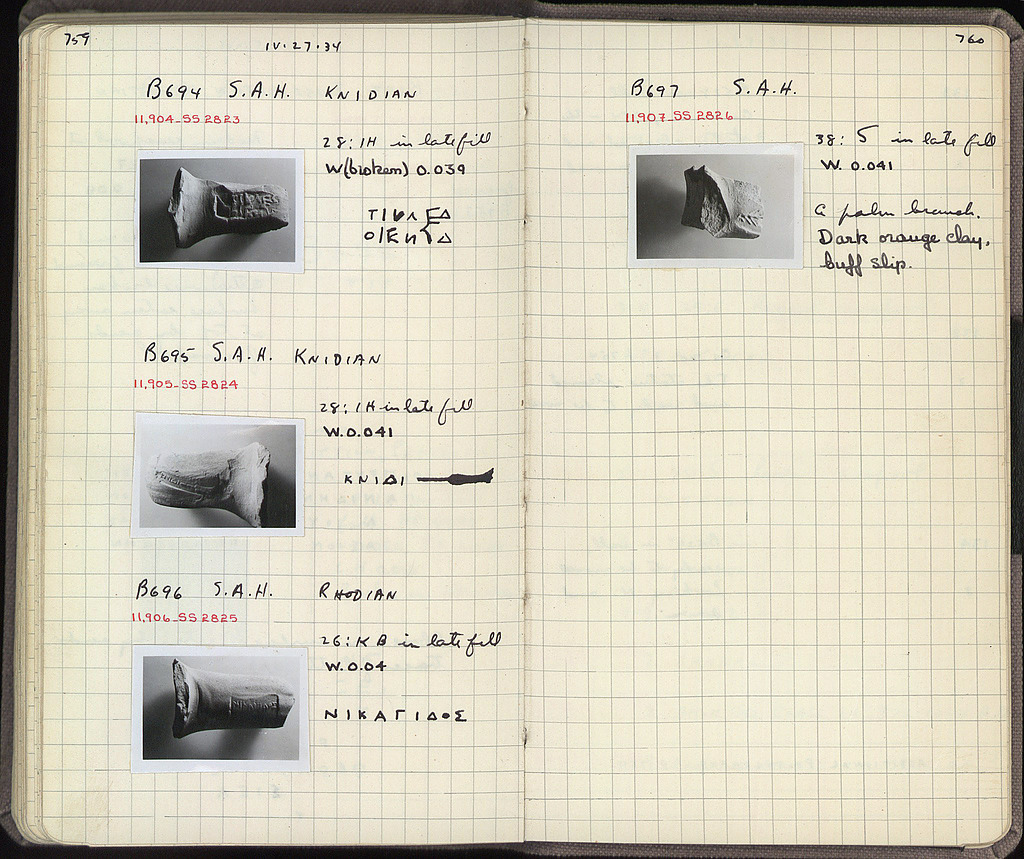 759
IV·27·34
B694 S.A.H. KNIDIAN
11,904-SS 2823
28: IH in late fill
W(broken) 0.039
B695 S.A.H. KNIDIAN
11,905-SS 2824
28: IH in late fill
W.0.041
ΚΝΙΔΙ
B696 S.A.H. RHODIAN
11,906-SS 2825
26: KB in late fill
W.0.04
ΝΙΚΑΓΙΔΟΣ
760
B697 S.A.H.
11,907-SS 2826
38: 5 in late fill
W. 0.041
A palm branch.
Dark orange clay,
buff slip.